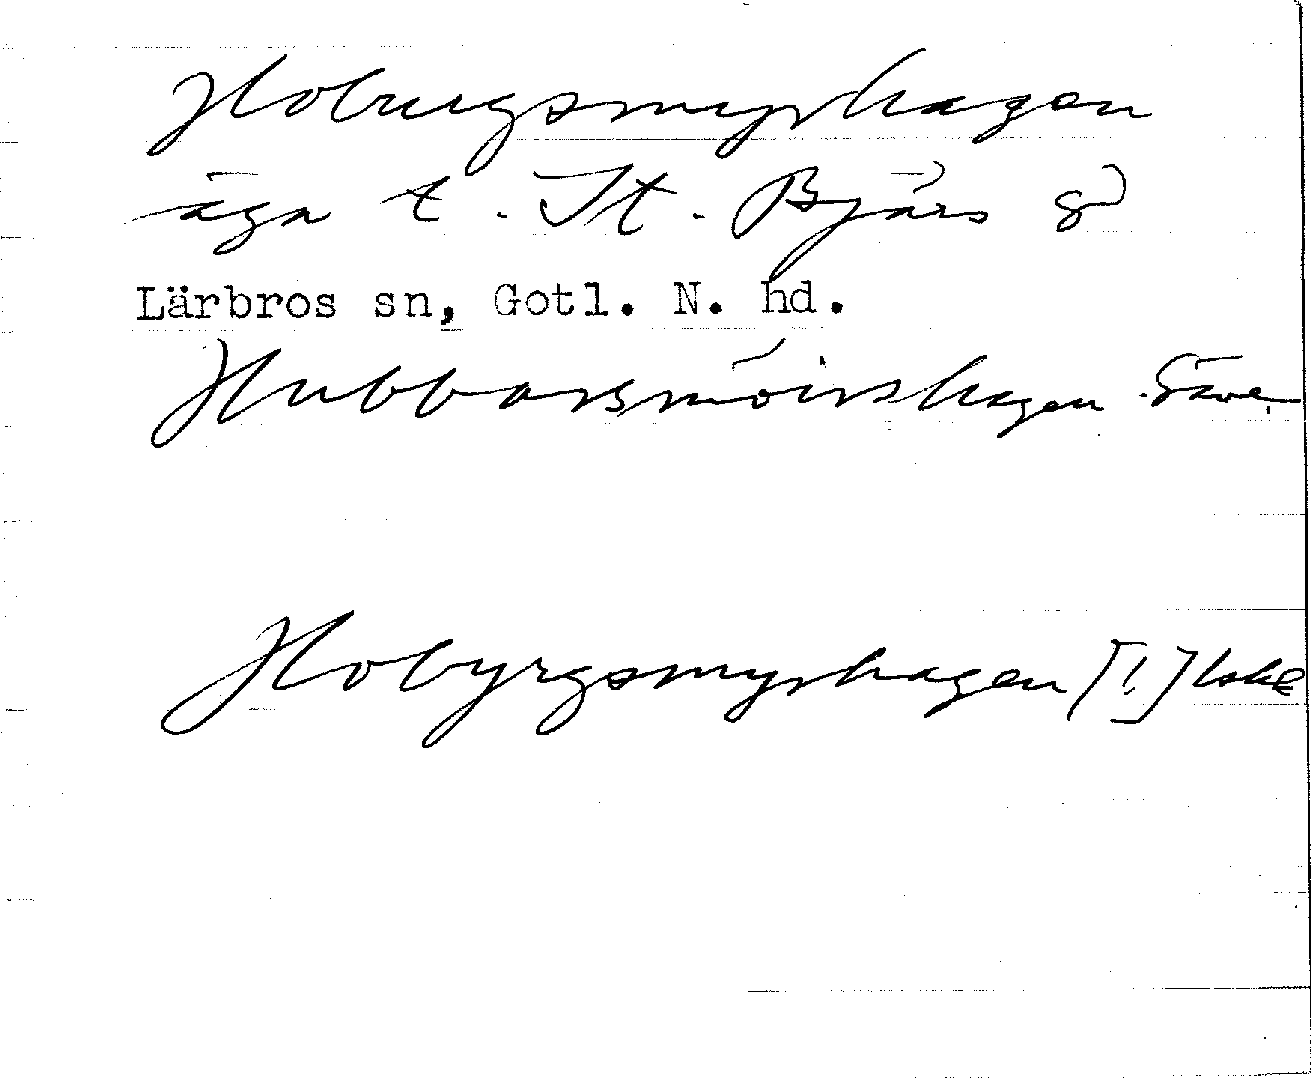 Hoburgsmyrhagen
äga t. St. Bjärs gd
Lärbros sn, Gotl. N. hd.
Hubbarsmöirshagen Säve
Hobyrgsmyrhagen [!] lske